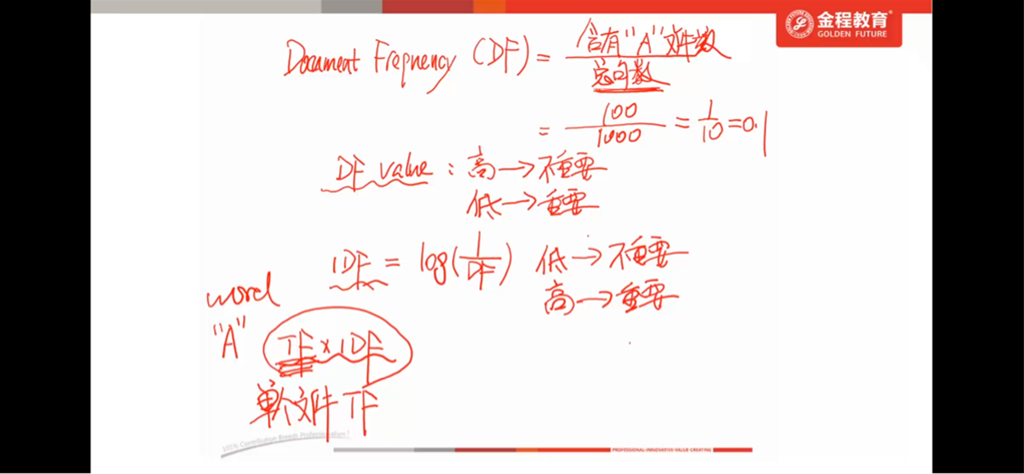 金程教育®
GOLDEN FUTURE
Document Frequency (DF) = 含有"A"文件数
总句数
= 100/1000 = 1/10 = 0.1
DF value : 高→不重要
低→重要
IDF = log(1/DF) 低→不重要
高→重要
word
"A"
TF × IDF
单个文件 TF
100% Contribution Breeds Professionalism!
PROFESSIONAL·INNOVATIVE·VALUE CREATING